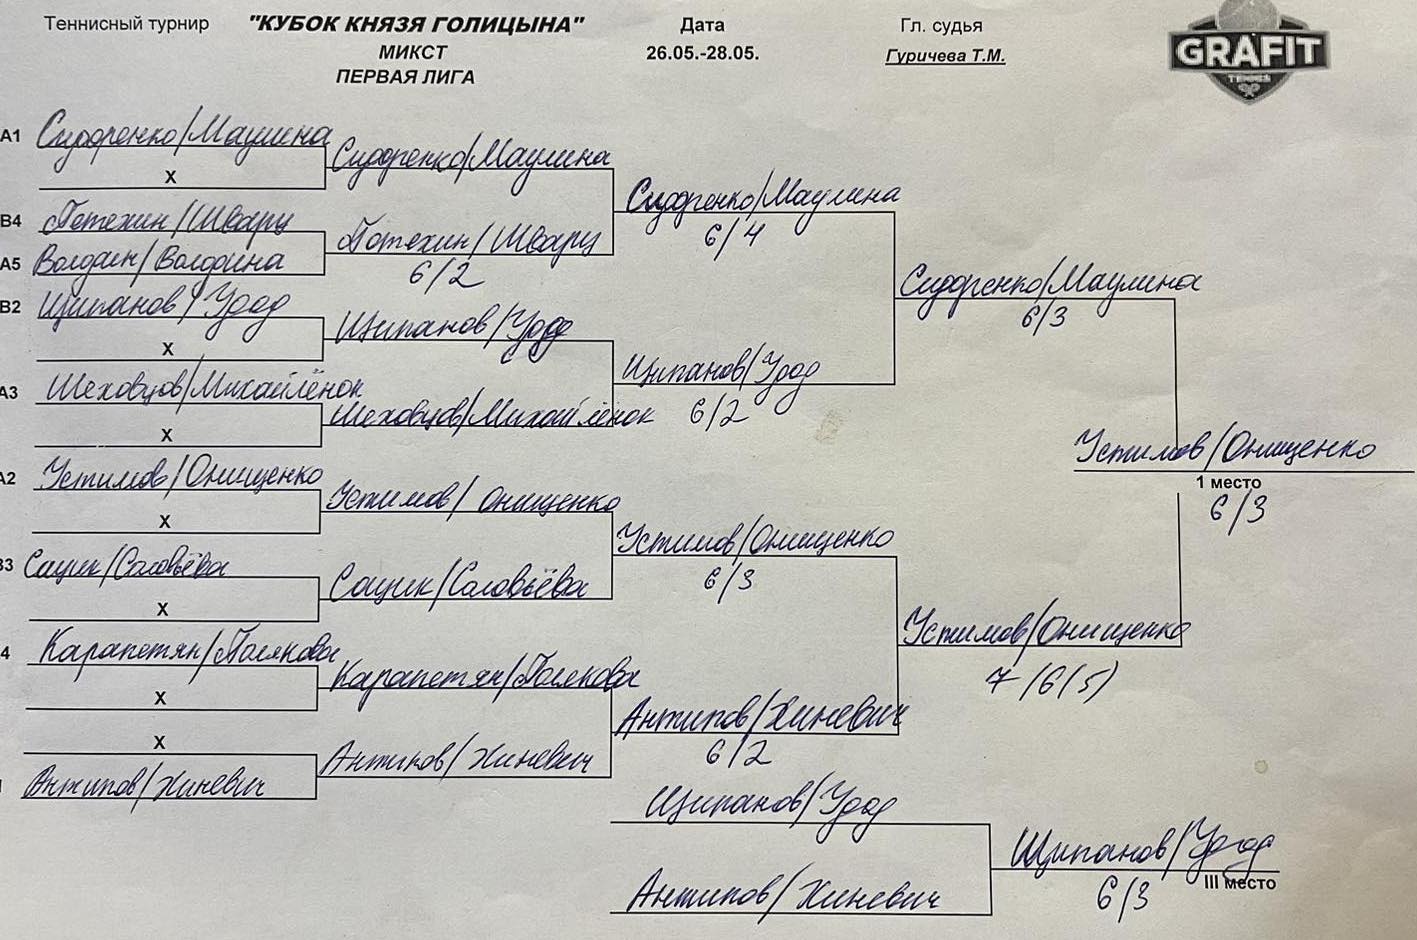 Теннисный турнир "КУБОК КНЯЗЯ ГОЛИЦЫНА" Дата Гл. судья
МИКСТ 26.05.-28.05. Гуричева Т.М.
ПЕРВАЯ ЛИГА
GRAFIT
TENNIS
A1 Сидоренко/Маулина
Сидоренко/Маулина
X
Сидоренко/Маулина
6/4
B4 Потехин/Шварц
Потехин/Шварц
6/2
A5 Волдин/Волдина
Сидоренко/Маулина
6/3
B2 Щипанов/Удод
Щипанов/Удод
X
Щипанов/Удод
6/2
A3 Шеховцов/Михайлёнок
Шеховцов/Михайлёнок
X
Устимов/Онищенко
1 место
6/3
A2 Устимов/Онищенко
Устимов/Онищенко
X
Устимов/Онищенко
6/3
33 Сацик/Соловьёва
Сацик/Соловьёва
X
Устимов/Онищенко
7/6(5)
4 Карапетян/Полякова
Карапетян/Полякова
X
Антипов/Хиневич
6/2
X
Антипов/Хиневич
Антипов/Хиневич
Щипанов/Удод
Щипанов/Удод
III место
6/3
Антипов/Хиневич